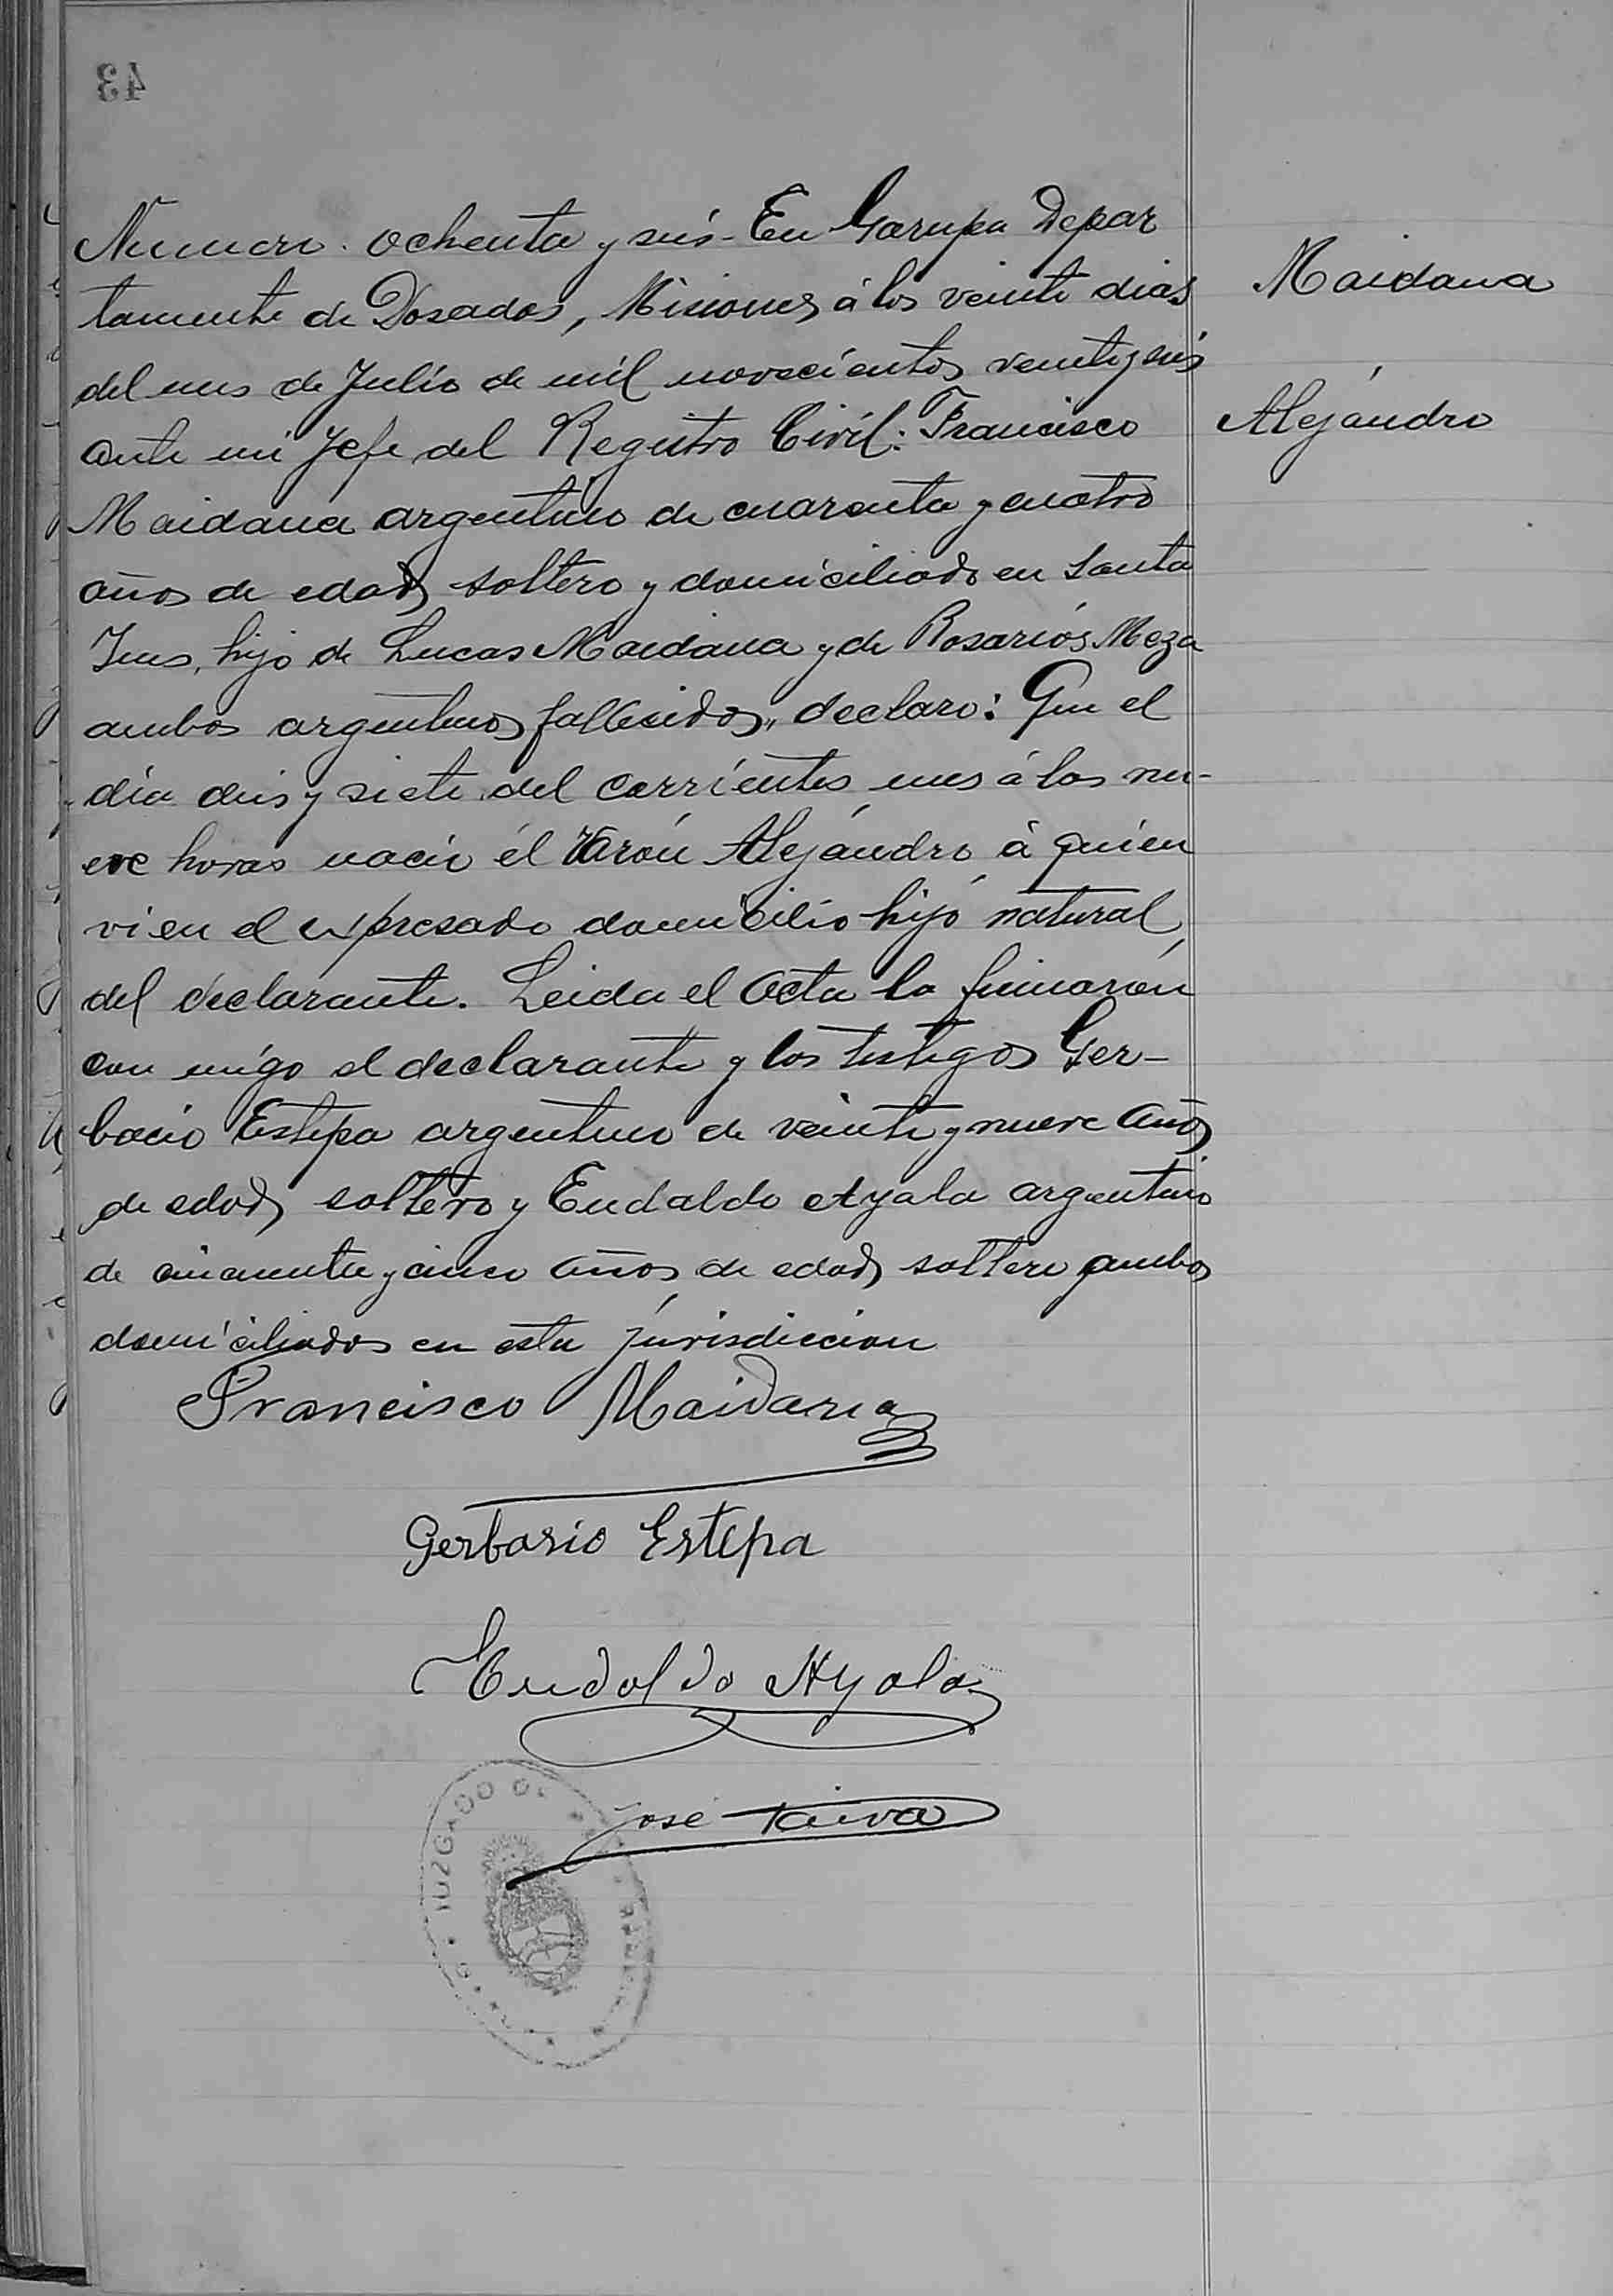 43
Numero. ochenta y seis - En Garupa Depar
tamento de Posadas, Misiones á los veinte dias
del mes de Julio de mil novecientos veintey seis
ante mi Jefe del Registro Civil: Francisco
Maidana argentino de cuarenta y cuatro
años de edad, soltero y domiciliado en Santa
Ines, hijo de Lucas Maidana y de Rosarios Meza
ambos argentinos, fallecidos, declaro: Que el
día dies y siete del corrientes mes á las nu-
eve horas nació él Varón Alejándro, à quien
vi en el expresado domicilio hijo natural,
del declarante. Leida el acta la firmarón
con migo el declarante y los testigos Ger-
bacio Estepa argentino de veinte y nueve años
de edad, soltero y Eudaldo Ayala argentino
de cincuenta y cinco años de edad, soltero ambos
domiciliados en esta jurisdiccion
Francisco Maidana
Gerbasio Estepa
Eudaldo Ayala
José Paiva
JUZGADO DE
Maidana
Alejándro